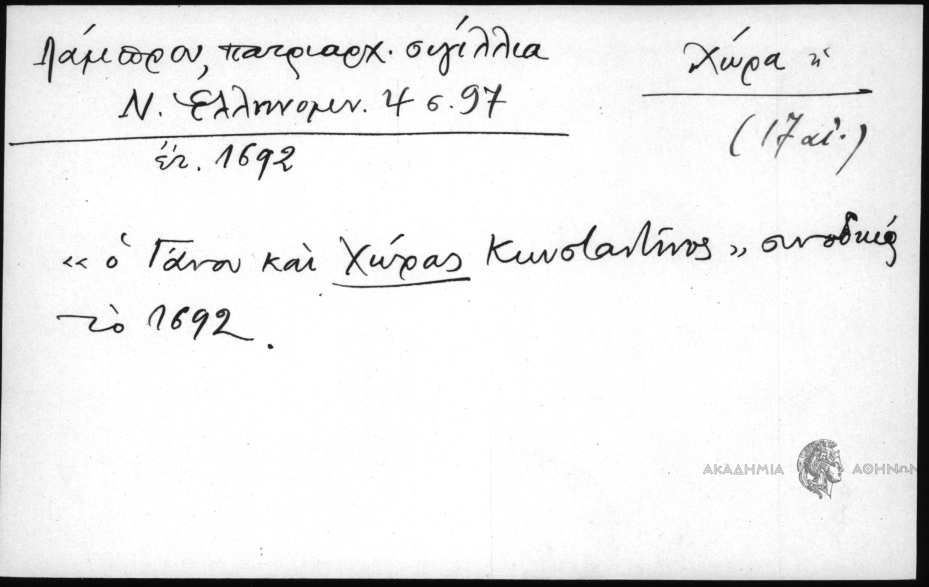 Λάμπρου, πατριαρχ. σιγίλλια
Ν. Ἑλληνομν. 4 σ. 97
ἔτ. 1692
Χώρα ἡ
(17 αἰ.)
«ὁ Γάνου καὶ Χώρας Κωνσταντῖνος» συνοδικῶς
τὸ 1692.
ΑΚΑΔΗΜΙΑ ΑΘΗΝΩΝ